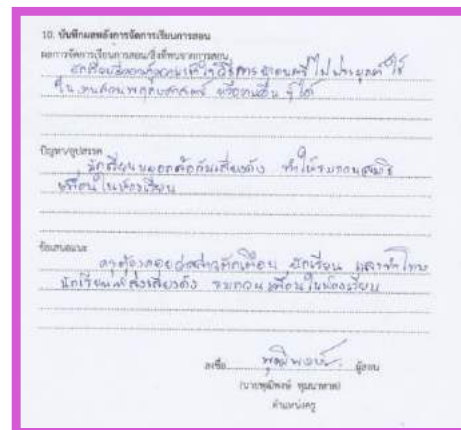 10. บันทึกผลหลังการจัดการเรียนการสอน
ผลการจัดการเรียนการสอน/สิ่งที่พบจากการสอน
นักเรียนมีความรู้ความเข้าใจวิธีการ ไปประยุกต์ใช้
ใน งานสวนพฤกษศาสตร์ หรืองานอื่น ๆ ได้
ปัญหา/อุปสรรค
นักเรียนหยอกล้อกันเสียงดัง ทำให้รบกวนสมาธิ
เพื่อนในห้องเรียน
ข้อเสนอแนะ
ครูต้องคอยว่ากล่าวตักเตือน นักเรียน และทำโทษ
นักเรียนที่ส่งเสียงดัง รบกวนเพื่อนในห้องเรียน
ลงชื่อ พุฒิพงษ์ ผู้สอน
(นายพุฒิพงษ์
ตำแหน่งครู